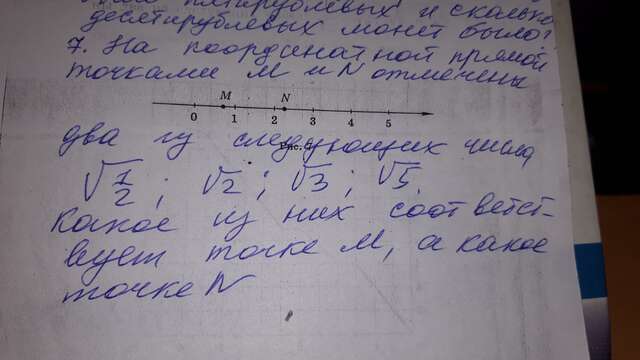 пятирублевых и сколько
десятирублевых монет было?
7. На координатной прямой
точками M и N отмечены
M N
0 1 2 3 4 5
два из следующих чисел
Рис.
√1/2; √2; √3; √5.
Какое из них соответст-
вует точке M, а какое
точке N